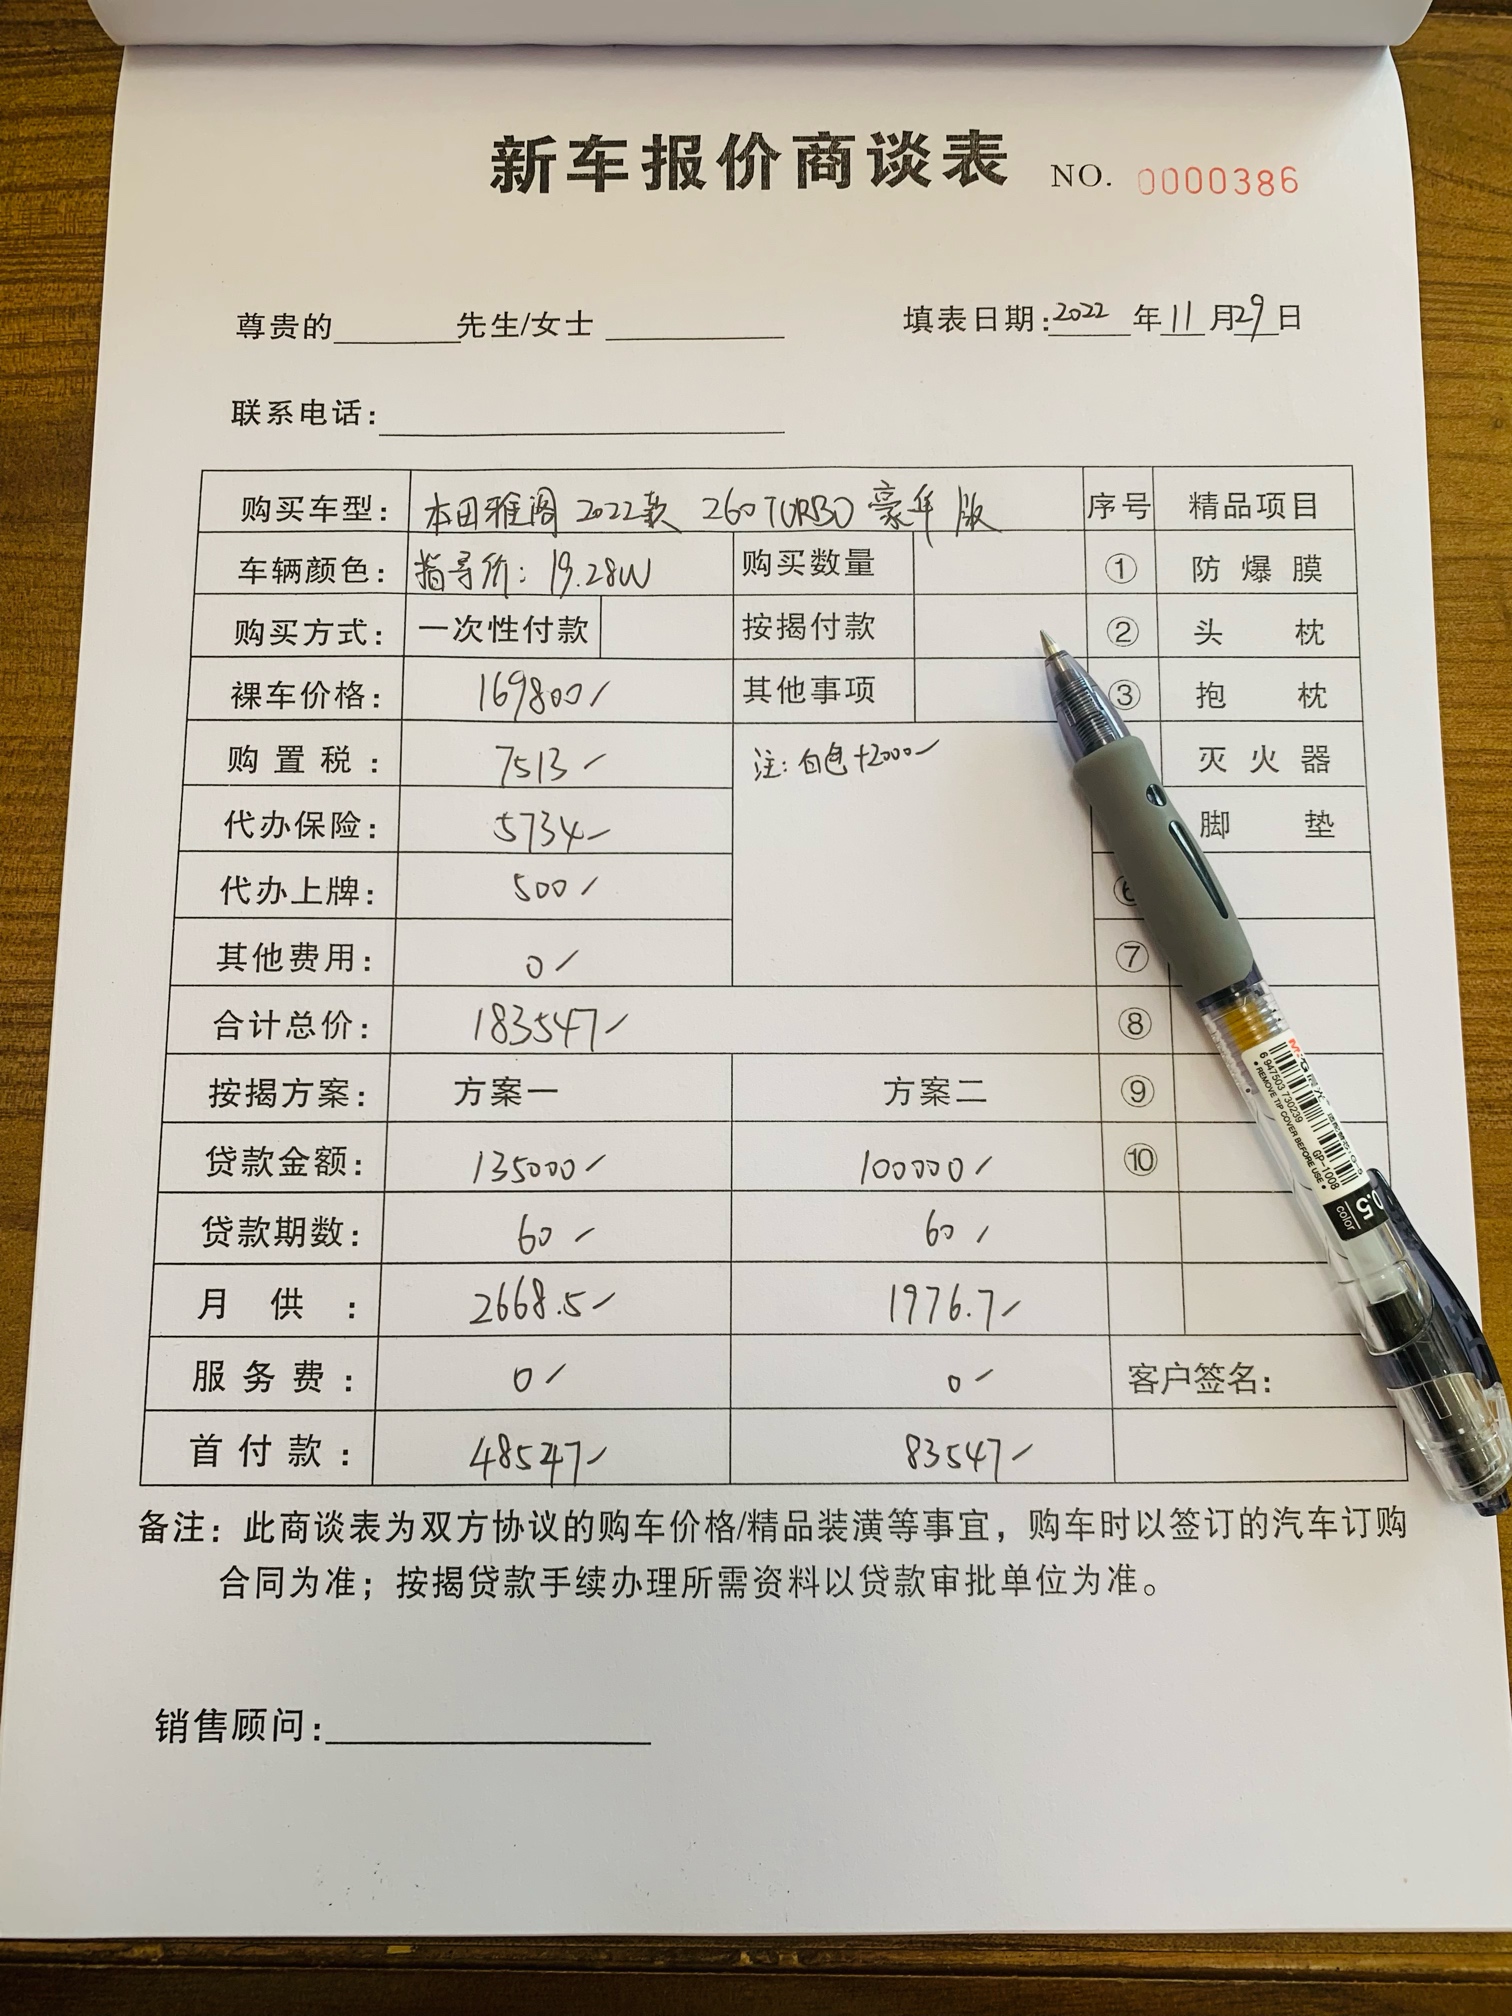 新车报价商谈表 NO. 0000386
尊贵的 先生/女士 填表日期:2022年11月29日
联系电话:
购买车型: 本田雅阁 2022款 260TURBO 豪华版 序号 精品项目
车辆颜色: 指导价: 19.28W 购买数量 ① 防爆膜
购买方式: 一次性付款 按揭付款 ② 头枕
裸车价格: 169800 其他事项 ③ 抱枕
购置税: 7513 注: 白色+2000 灭火器
代办保险: 5734 脚垫
代办上牌: 500 ⑥
其他费用: 0 ⑦
合计总价: 183547 ⑧
按揭方案: 方案一 方案二 ⑨
贷款金额: 135000 100000 ⑩
贷款期数: 60 60
月供: 2668.5 1976.7
服务费: 0 0 客户签名:
首付款: 48547 83547
备注: 此商谈表为双方协议的购车价格/精品装潢等事宜，购车时以签订的汽车订购
合同为准；按揭贷款手续办理所需资料以贷款审批单位为准。
销售顾问:
M&G
6 947503 730239
GP-1008
REMOVE TIP COVER BEFORE USE
0.5
color